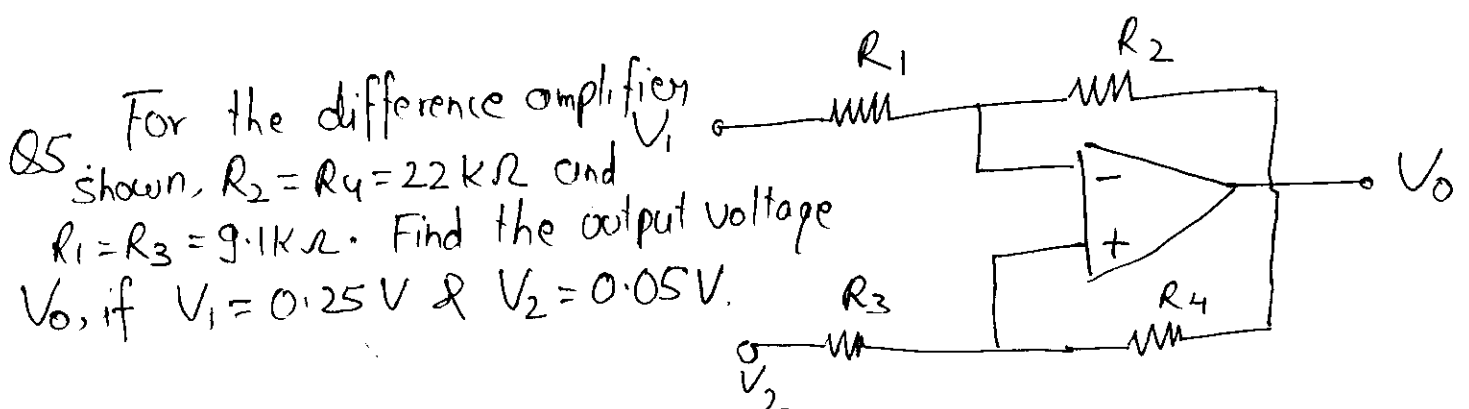 Q5 For the difference amplifier
shown, R2 = R4 = 22 KΩ and
R1 = R3 = 9.1KΩ. Find the output voltage
Vo, if V1 = 0.25 V & V2 = 0.05 V.
R1
R2
V1
-
Vo
+
R3
R4
V2